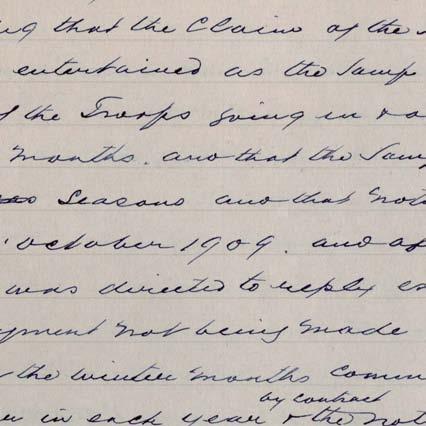 that the Claim of the
entertained as the Lamp
the Troops going in + o
months. and that the Lam
Seasons and that not
October 1909. and af
was directed to reply
not being made
the winter months comm
by contract
in each year + the not